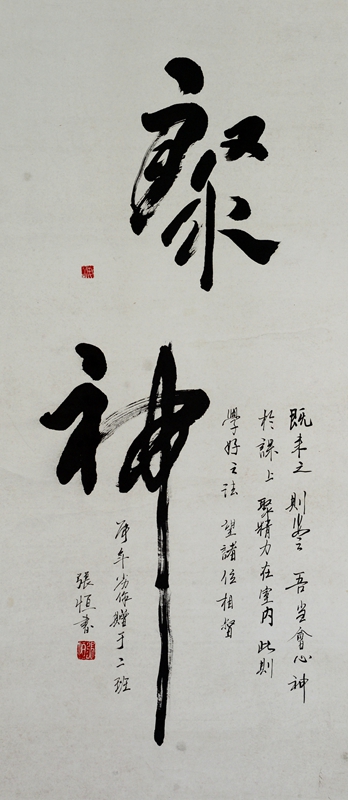 聚神
既来之 則安之 吾当會心神
於課上 聚精力在室内 此則
學好之法 望諸位相督
年 作贈于二班
張恒書